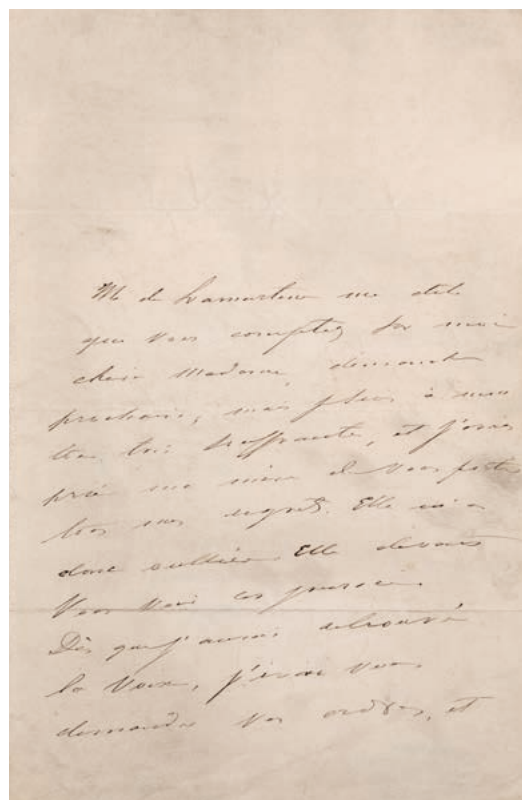 M. de Lamartine me dit
que vous comptez sur moi
chère Madame, dimanche
prochain, mais je suis
très très souffrante, et j'avais
prié ma mère de vous porter
tous mes regrets. Elle m'a
donc oubliée. Elle devait
vous voir ces jours ci.
Dès que j'aurai retrouvé
la voix, j'irai vous
demander vos ordres, et